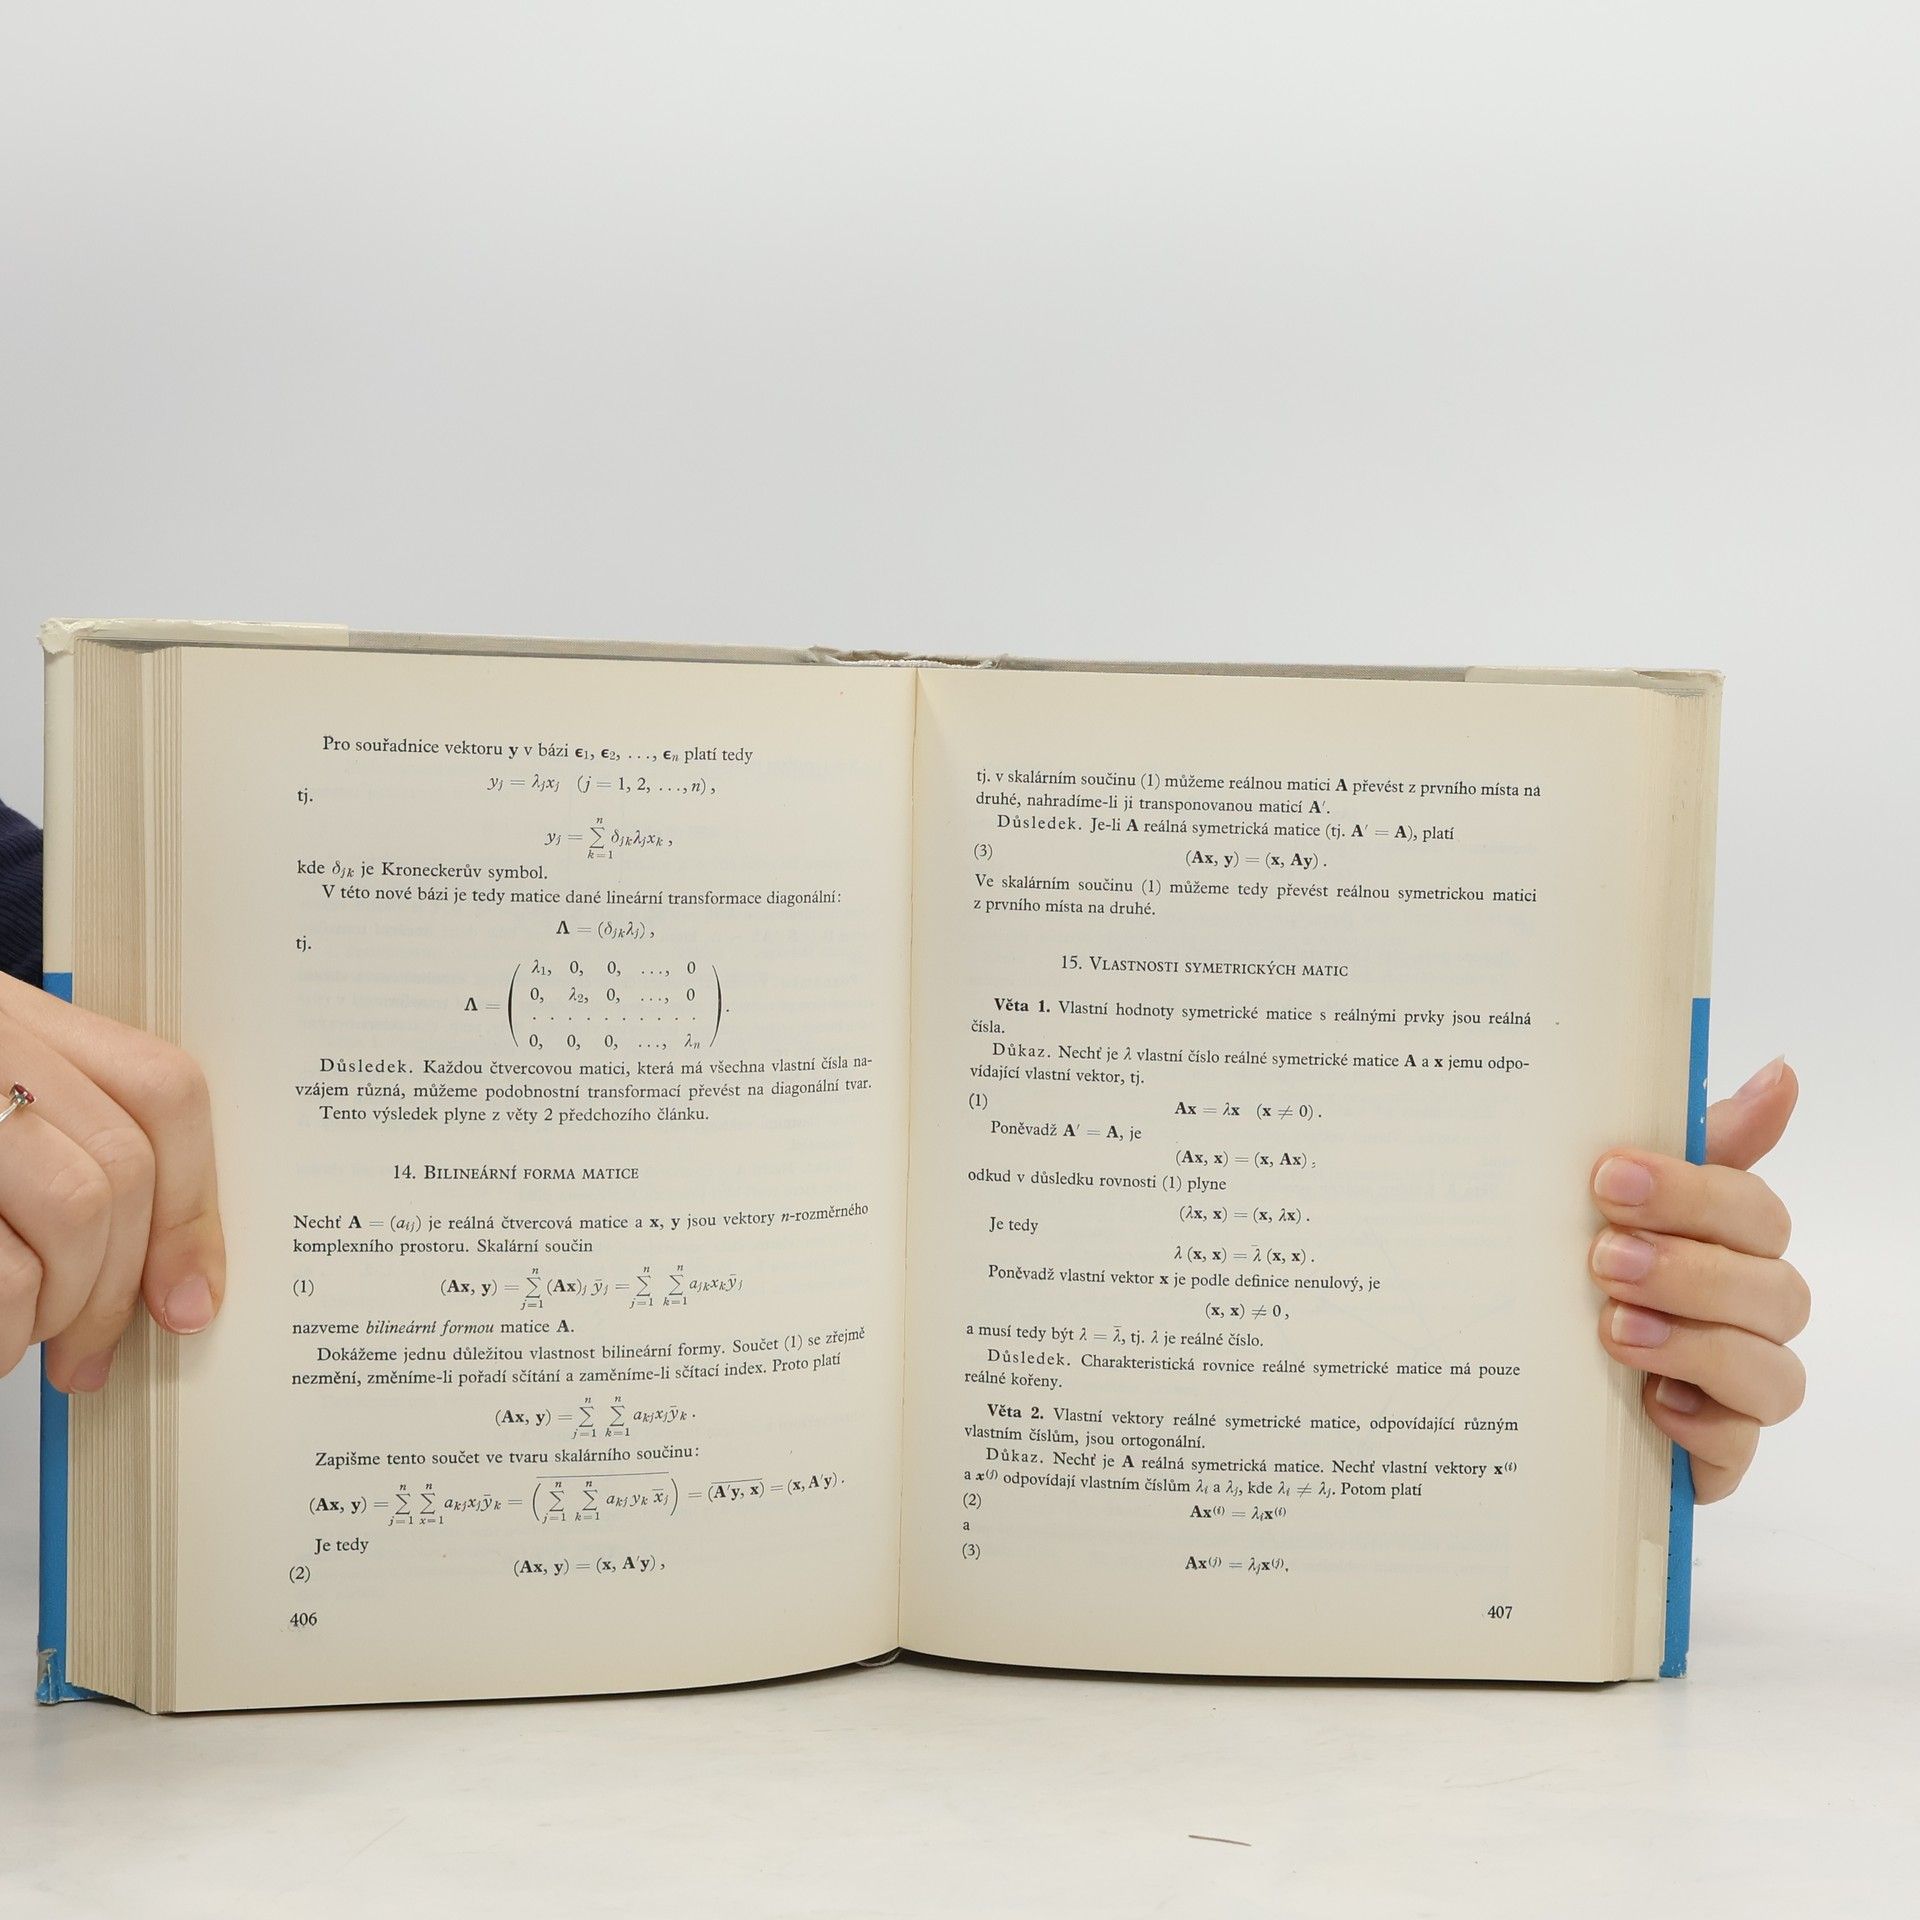 Pro souřadnice vektoru y v bázi ϵ₁, ϵ₂, ..., ϵₙ platí tedy
yⱼ = λⱼxⱼ (j = 1, 2, ..., n),
tj.
yⱼ = ∑ₖ₌₁ⁿ δⱼₖλⱼxₖ,
kde δⱼₖ je Kroneckerův symbol.
V této nové bázi je tedy matice dané lineární transformace diagonální:
Λ = (δⱼₖλⱼ),
tj.
Λ = ( λ₁, 0, 0, ..., 0
0, λ₂, 0, ..., 0
. . . . . . . . . .
0, 0, 0, ..., λₙ ).
Důsledek. Každou čtvercovou matici, která má všechna vlastní čísla na-
vzájem různá, můžeme podobnostní transformací převést na diagonální tvar.
Tento výsledek plyne z věty 2 předchozího článku.
14. BILINEÁRNÍ FORMA MATICE
Nechť A = (aᵢⱼ) je reálná čtvercová matice a x, y jsou vektory n-rozměrného
komplexního prostoru. Skalární součin
(1) (Ax, y) = ∑ⱼ₌₁ⁿ (Ax)ⱼ ȳⱼ = ∑ⱼ₌₁ⁿ ∑ₖ₌₁ⁿ aⱼₖxₖȳⱼ
nazveme bilineární formou matice A.
Dokážeme jednu důležitou vlastnost bilineární formy. Součet (1) se zřejmě
nezmění, změníme-li pořadí sčítání a zaměníme-li sčítací index. Proto platí
(Ax, y) = ∑ⱼ₌₁ⁿ ∑ₖ₌₁ⁿ aₖⱼxⱼȳₖ.
Zapišme tento součet ve tvaru skalárního součinu:
(Ax, y) = ∑ⱼ₌₁ⁿ ∑ₓ₌₁ⁿ aₖⱼxⱼȳₖ = \overline{(∑ⱼ₌₁ⁿ ∑ₖ₌₁ⁿ aₖⱼyₖ x̄ⱼ)} = \overline{(A′y, x)} = (x, A′y).
Je tedy
(2) (Ax, y) = (x, A′y),
406
tj. v skalárním součinu (1) můžeme reálnou matici A převést z prvního místa na
druhé, nahradíme-li ji transponovanou maticí A′.
Důsledek. Je-li A reálná symetrická matice (tj. A′ = A), platí
(3) (Ax, y) = (x, Ay).
Ve skalárním součinu (1) můžeme tedy převést reálnou symetrickou matici
z prvního místa na druhé.
15. VLASTNOSTI SYMETRICKÝCH MATIC
Věta 1. Vlastní hodnoty symetrické matice s reálnými prvky jsou reálná
čísla.
Důkaz. Nechť je λ vlastní číslo reálné symetrické matice A a x jemu odpo-
vídající vlastní vektor, tj.
(1) Ax = λx (x ≠ 0).
Poněvadž A′ = A, je
(Ax, x) = (x, Ax),
odkud v důsledku rovnosti (1) plyne
(λx, x) = (x, λx).
Je tedy
λ (x, x) = λ̄ (x, x).
Poněvadž vlastní vektor x je podle definice nenulový, je
(x, x) ≠ 0,
a musí tedy být λ = λ̄, tj. λ je reálné číslo.
Důsledek. Charakteristická rovnice reálné symetrické matice má pouze
reálné kořeny.
Věta 2. Vlastní vektory reálné symetrické matice, odpovídající různým
vlastním číslům, jsou ortogonální.
Důkaz. Nechť je A reálná symetrická matice. Nechť vlastní vektory x⁽ⁱ⁾
a x⁽ʲ⁾ odpovídají vlastním číslům λᵢ a λⱼ, kde λᵢ ≠ λⱼ. Potom platí
(2) Ax⁽ⁱ⁾ = λᵢx⁽ⁱ⁾
a
(3) Ax⁽ʲ⁾ = λⱼx⁽ʲ⁾.
407